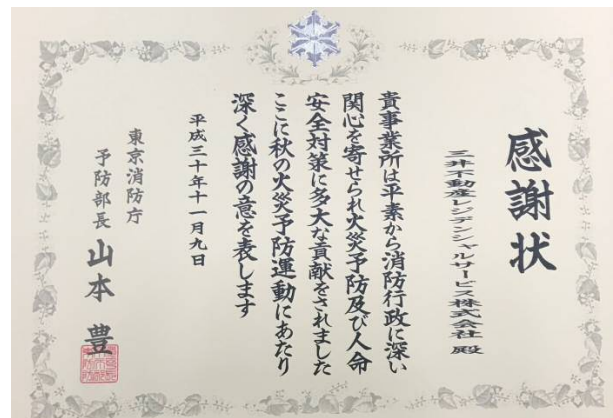 感謝状
三井不動産レジデンシャルサービス株式会社 殿
貴事業所は平素から消防行政に深い
関心を寄せられ火災予防及び人命
安全対策に多大な貢献をされました
ここに秋の火災予防運動にあたり
深く感謝の意を表します
平成三十年十一月九日
東京消防庁
予防部長 山本 豊